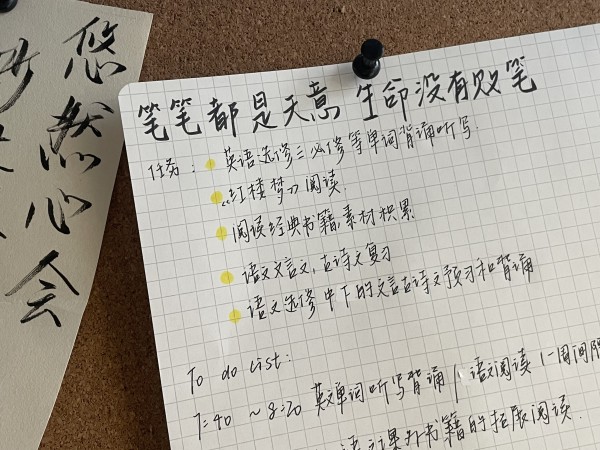 悠然心会
妙
笔笔都是天意 生命没有败笔
任务: 英语选修三必修等单词背诵听写.
《红楼梦》阅读
阅读经典书籍,素材积累
语文文言文,古诗文复习
语文选修中下的文言古诗文预习和背诵
To do list:
7:40 ~ 8:20 英文单词听写背诵/语文阅读(一周间隔
语文课外书籍的拓展阅读.